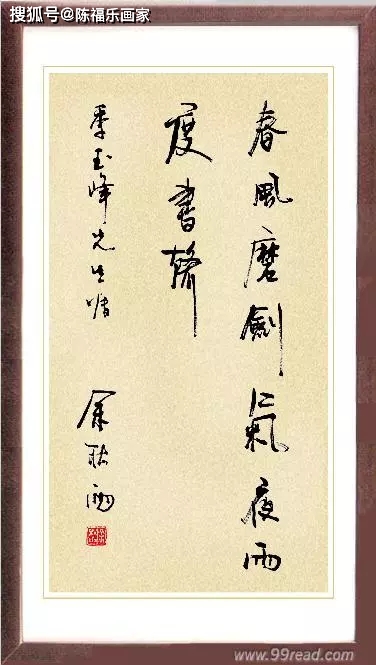 搜狐号@陈福乐画家
春風磨劍氣夜雨
度書聲
季玉峰先生嘱
余秋雨
www.99read.com